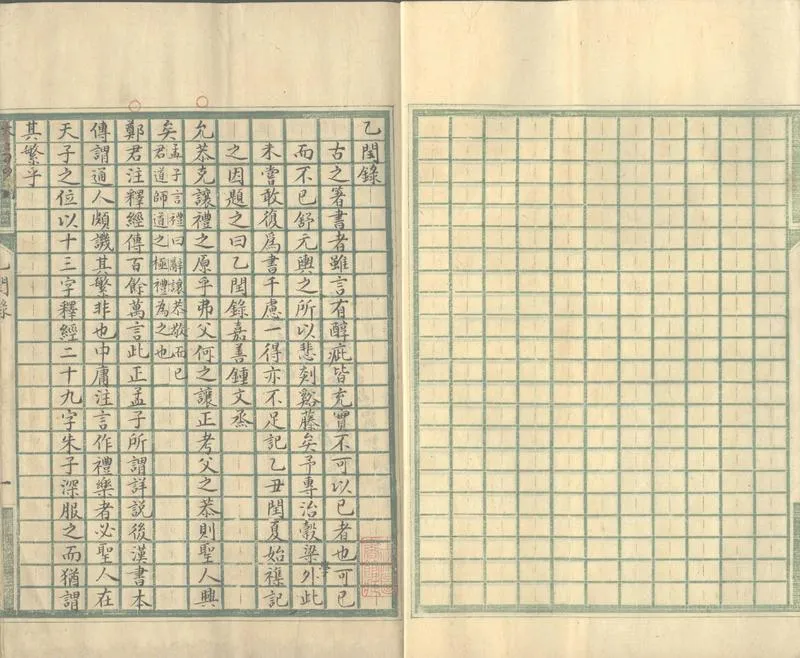 乙閏錄
古之著書者雖言有醇疵皆充實不可以已者也可已
而不已舒元輿之所以悲剡谿藤矣予專治穀梁外此
未嘗敢復爲書千慮一得亦不足記乙丑閏夏始襍記
之因題之曰乙閏錄嘉善鍾文烝
允恭克讓禮之原乎弗父何之讓正考父之恭則聖人興
矣孟子言禮曰辭讓恭敬而已
君道師道之極禮為之也
鄭君注釋經傳百餘萬言此正孟子所謂詳説後漢書本
傳謂通人頗譏其繁非也中庸注言作禮樂者必聖人在
天子之位以十三字釋經二十九字朱子深服之而猶謂
其繁乎
乙閏錄
一